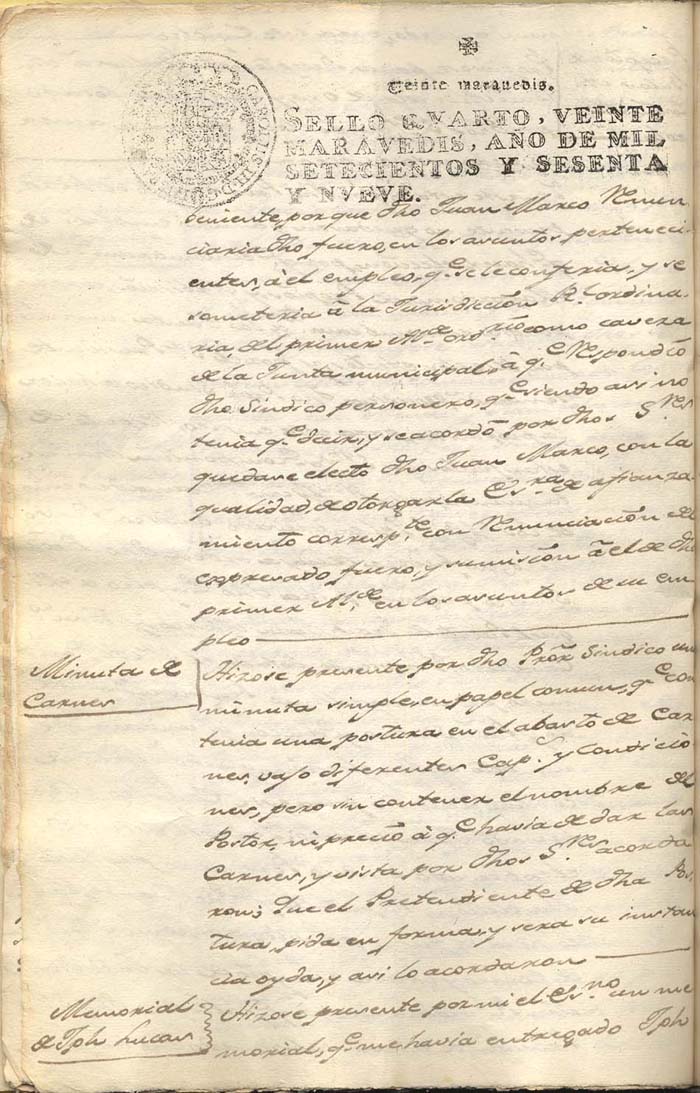 Veinte maravedis.
SELLO QVARTO, VEINTE
MARAVEDIS, AÑO DE MIL
SETECIENTOS Y SESENTA
Y NVEVE.
CAROLUS III D G
beniente, por que dho Juan Marco Renun
ciaria dho fuero, en los asuntos, perteneci
entes, à el empleo, q.e se le conferia, y se
someteria à la Jurisdiccion R.l ordina
ria, del primer Al.de ord.rio como caveza
de la Junta municipal, à q.e Respondiò
dho Sindico personero, q.e siendo asi no
tenia q.e decir, y se acordò por dhos S.res
quedase electo dho Juan Marco, con la
qualidad, de otorgar la Es.ra de afianza
miento corresp.te con Renunciacion de
expresado fuero, y sumision à el de dho
primer Al.de en los asuntos de su em
pleo
Minuta de
Carnes
Hizose presente por dho Pror Sindico una
minuta simple, en papel comun, q.e con
tenia una postura en el abasto de Car
nes, vajo diferentes Cap.s y Condicio
nes, pero sin contener el nombre del
Postor, ni precio à q.e havia de dar las
Carnes, y vista por dhos S.res acorda
ron; Que el Pretendiente de dha Pos
tura, pida en forma, y sera su instan
cia oyda, y asi lo acordaron
Memorial
de Jph Lucas
Hizose presente por mi el Es.no un me
morial, q.e me havia entregado Jph